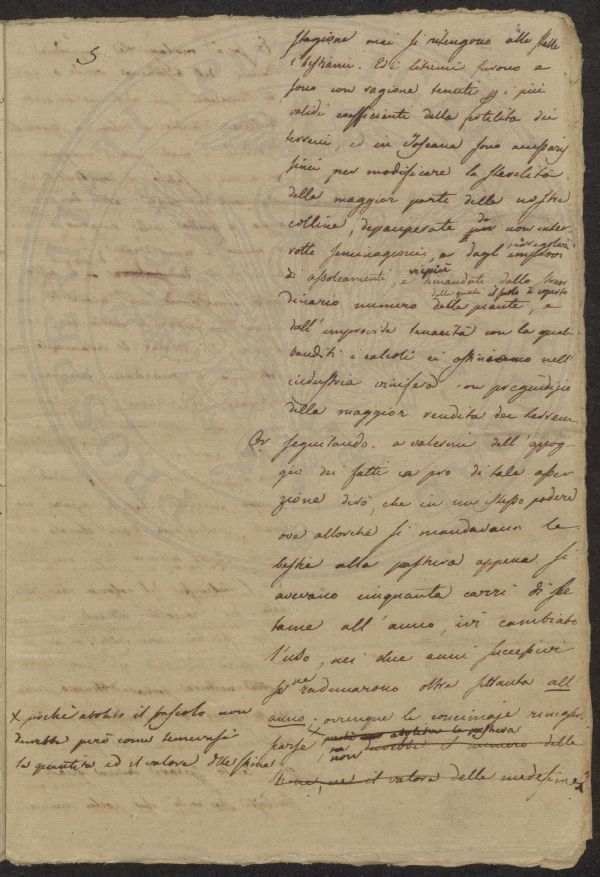 5
stagione mai si ritengono alle stalle
i bestiami. Ed i letami furono e
sono con ragione tenuti p. i più
validi coefficienti della fertilità dei
terreni, ed in Toscana sono necessaris
simi per modificare la sterilità
della maggior parte delle nostre
colline, depauperate da non inter
rotte seminagioni, e dagl' irregolari
di assolcamenti, e vieppiù dimandate dallo straor
dinario numero delle piante, delle quali il suolo è coperto e
dall' improvida tenacità con la quale
banditi i calcoli ci ostiniamo nell'
industria vinifera con pregiudizio
della maggior rendita dei terreni
Or seguitando a valermi dell' appog
gio dei fatti a pro di tale asser
zione dirò, che in un istesso podere
ove allorchè si mandavano le
bestie alla pastura appena si
avevano cinquanta carri di le
tame all' anno, ivi cambiato
l'uso, nei due anni successivi
se ne radunarono oltre settanta all'
anno; ovunque le concimaje
perse
non dovrebbe il numero delle
ne il valore delle medesime
x poichè abolito il pascolo non
dovrebbe però come temerasi
la quantità ed il valore delle